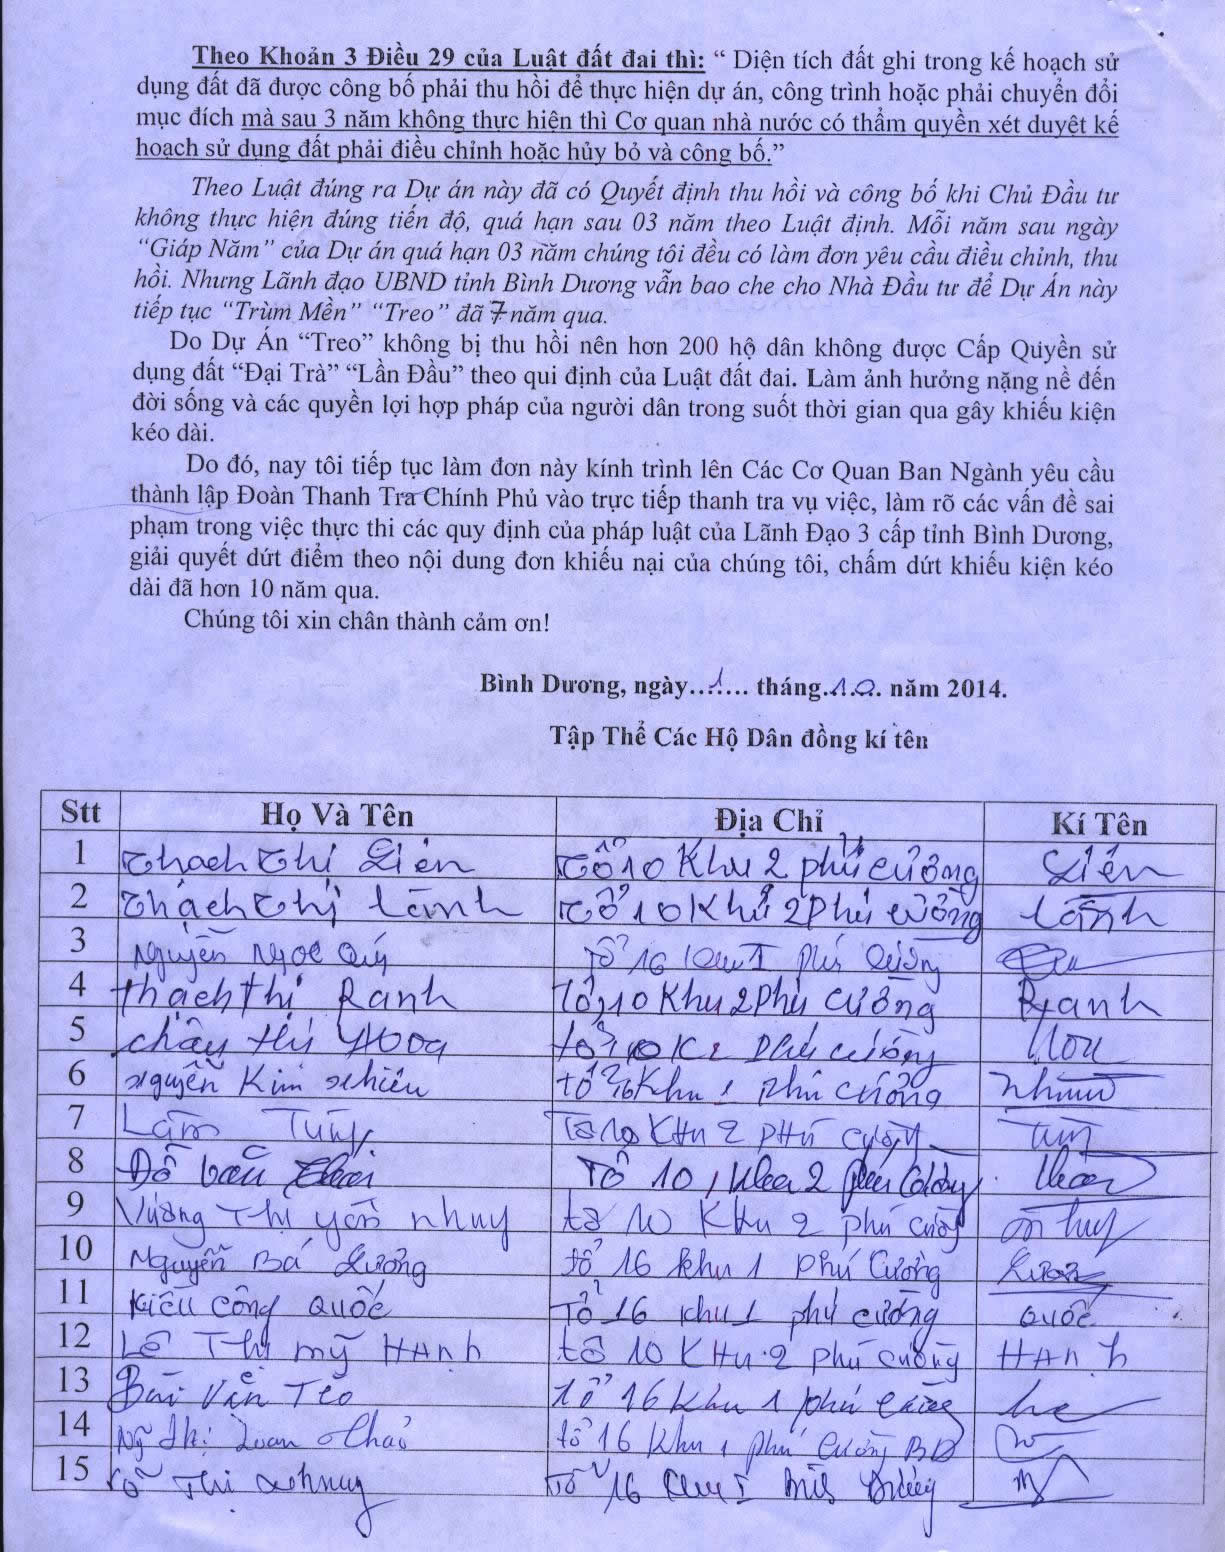 Theo Khoản 3 Điều 29 của Luật đất đai thì: “ Diện tích đất ghi trong kế hoạch sử
dụng đất đã được công bố phải thu hồi để thực hiện dự án, công trình hoặc phải chuyển đổi
mục đích mà sau 3 năm không thực hiện thì Cơ quan nhà nước có thẩm quyền xét duyệt kế
hoạch sử dụng đất phải điều chỉnh hoặc hủy bỏ và công bố.”
Theo Luật đúng ra Dự án này đã có Quyết định thu hồi và công bố khi Chủ Đầu tư
không thực hiện đúng tiến độ, quá hạn sau 03 năm theo Luật định. Mỗi năm sau ngày
“Giáp Năm” của Dự án quá hạn 03 năm chúng tôi đều có làm đơn yêu cầu điều chỉnh, thu
hồi. Nhưng Lãnh đạo UBND tỉnh Bình Dương vẫn bao che cho Nhà Đầu tư để Dự Án này
tiếp tục “Trùm Mền” “Treo” đã 7 năm qua.
Do Dự Án “Treo” không bị thu hồi nên hơn 200 hộ dân không được Cấp Quyền sử
dụng đất “Đại Trà” “Lần Đầu” theo qui định của Luật đất đai. Làm ảnh hưởng nặng nề đến
đời sống và các quyền lợi hợp pháp của người dân trong suốt thời gian qua gây khiếu kiện
kéo dài.
Do đó, nay tôi tiếp tục làm đơn này kính trình lên Các Cơ Quan Ban Ngành yêu cầu
thành lập Đoàn Thanh Tra Chính Phủ vào trực tiếp thanh tra vụ việc, làm rõ các vấn đề sai
phạm trong việc thực thi các quy định của pháp luật của Lãnh Đạo 3 cấp tỉnh Bình Dương,
giải quyết dứt điểm theo nội dung đơn khiếu nại của chúng tôi, chấm dứt khiếu kiện kéo
dài đã hơn 10 năm qua.
Chúng tôi xin chân thành cảm ơn!
Bình Dương, ngày...1.... tháng..10.. năm 2014.
Tập Thể Các Hộ Dân đồng kí tên
Stt Họ Và Tên Địa Chỉ Kí Tên
1 Thạch Thị Liên Tổ 10 Khu 2 phú cường Liên
2 Thạch Thị Lành Tổ 10 Khu 2 Phú cường Lành
3 Nguyễn Ngọc Quý Tổ 16 Khu I phú Cường
4 Thạch Thị Ranh Tổ 10 Khu 2 Phú cường Ranh
5 châu thị Hoa tổ 10 K 2 phú cường Hoa
6 Nguyễn Kim Nhiều tổ 16 Khu 1 phú cường Nhiều
7 Lâm Tùng Tổ 10 KHu 2 PHÚ cường Tùng
8 Đỗ văn Tổ 10, khu 2 phú Cường
9 Vương Thị yến nhuy tổ 10 KHu 2 phú cường nhuy
10 Nguyễn Bá Lương tổ 16 khu 1 Phú Cường Lương
11 Kiều công Quốc Tổ 16 khu 1 phú cường Quốc
12 Lê Thị mỹ HẠnh tổ 10 KHu 2 phú cường HAnh
13 Bùi Văn Tèo Tổ 16 Khu 1 phú cường
14 Thị Xuân Thảo tổ 16 Khu 1 phú Cường BD
15 Thị Nhung Tổ 16 Khu I